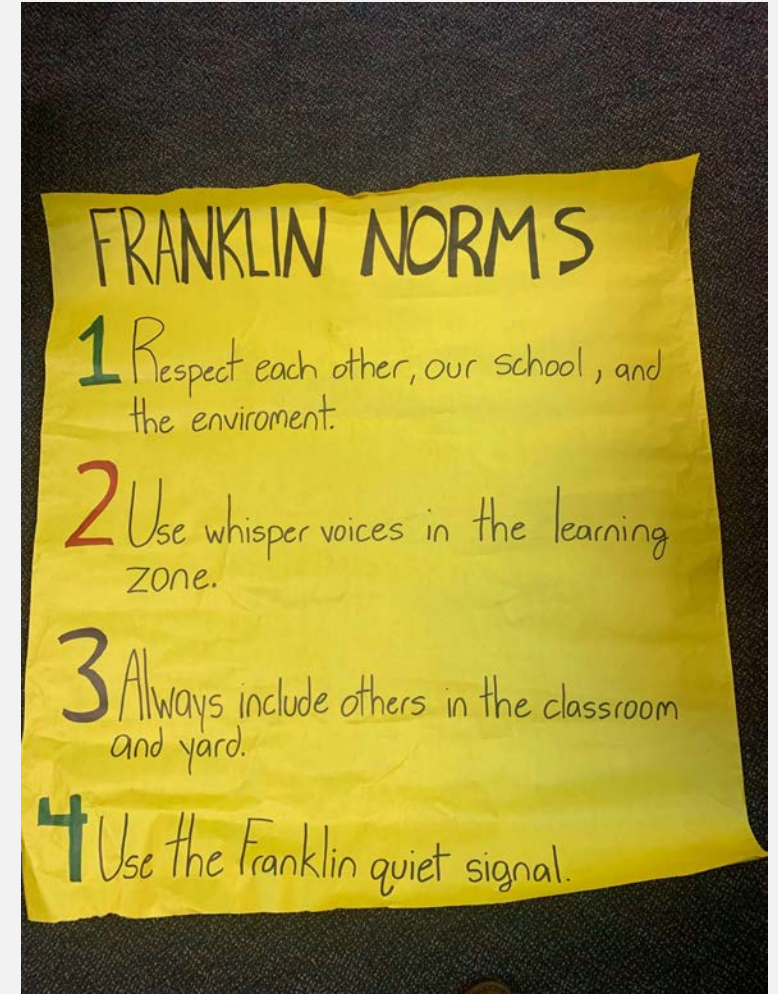 FRANKLIN NORMS
1 Respect each other, our school, and
the enviroment.
2 Use whisper voices in the learning
zone.
3 Always include others in the classroom
and yard.
4 Use the Franklin quiet signal.